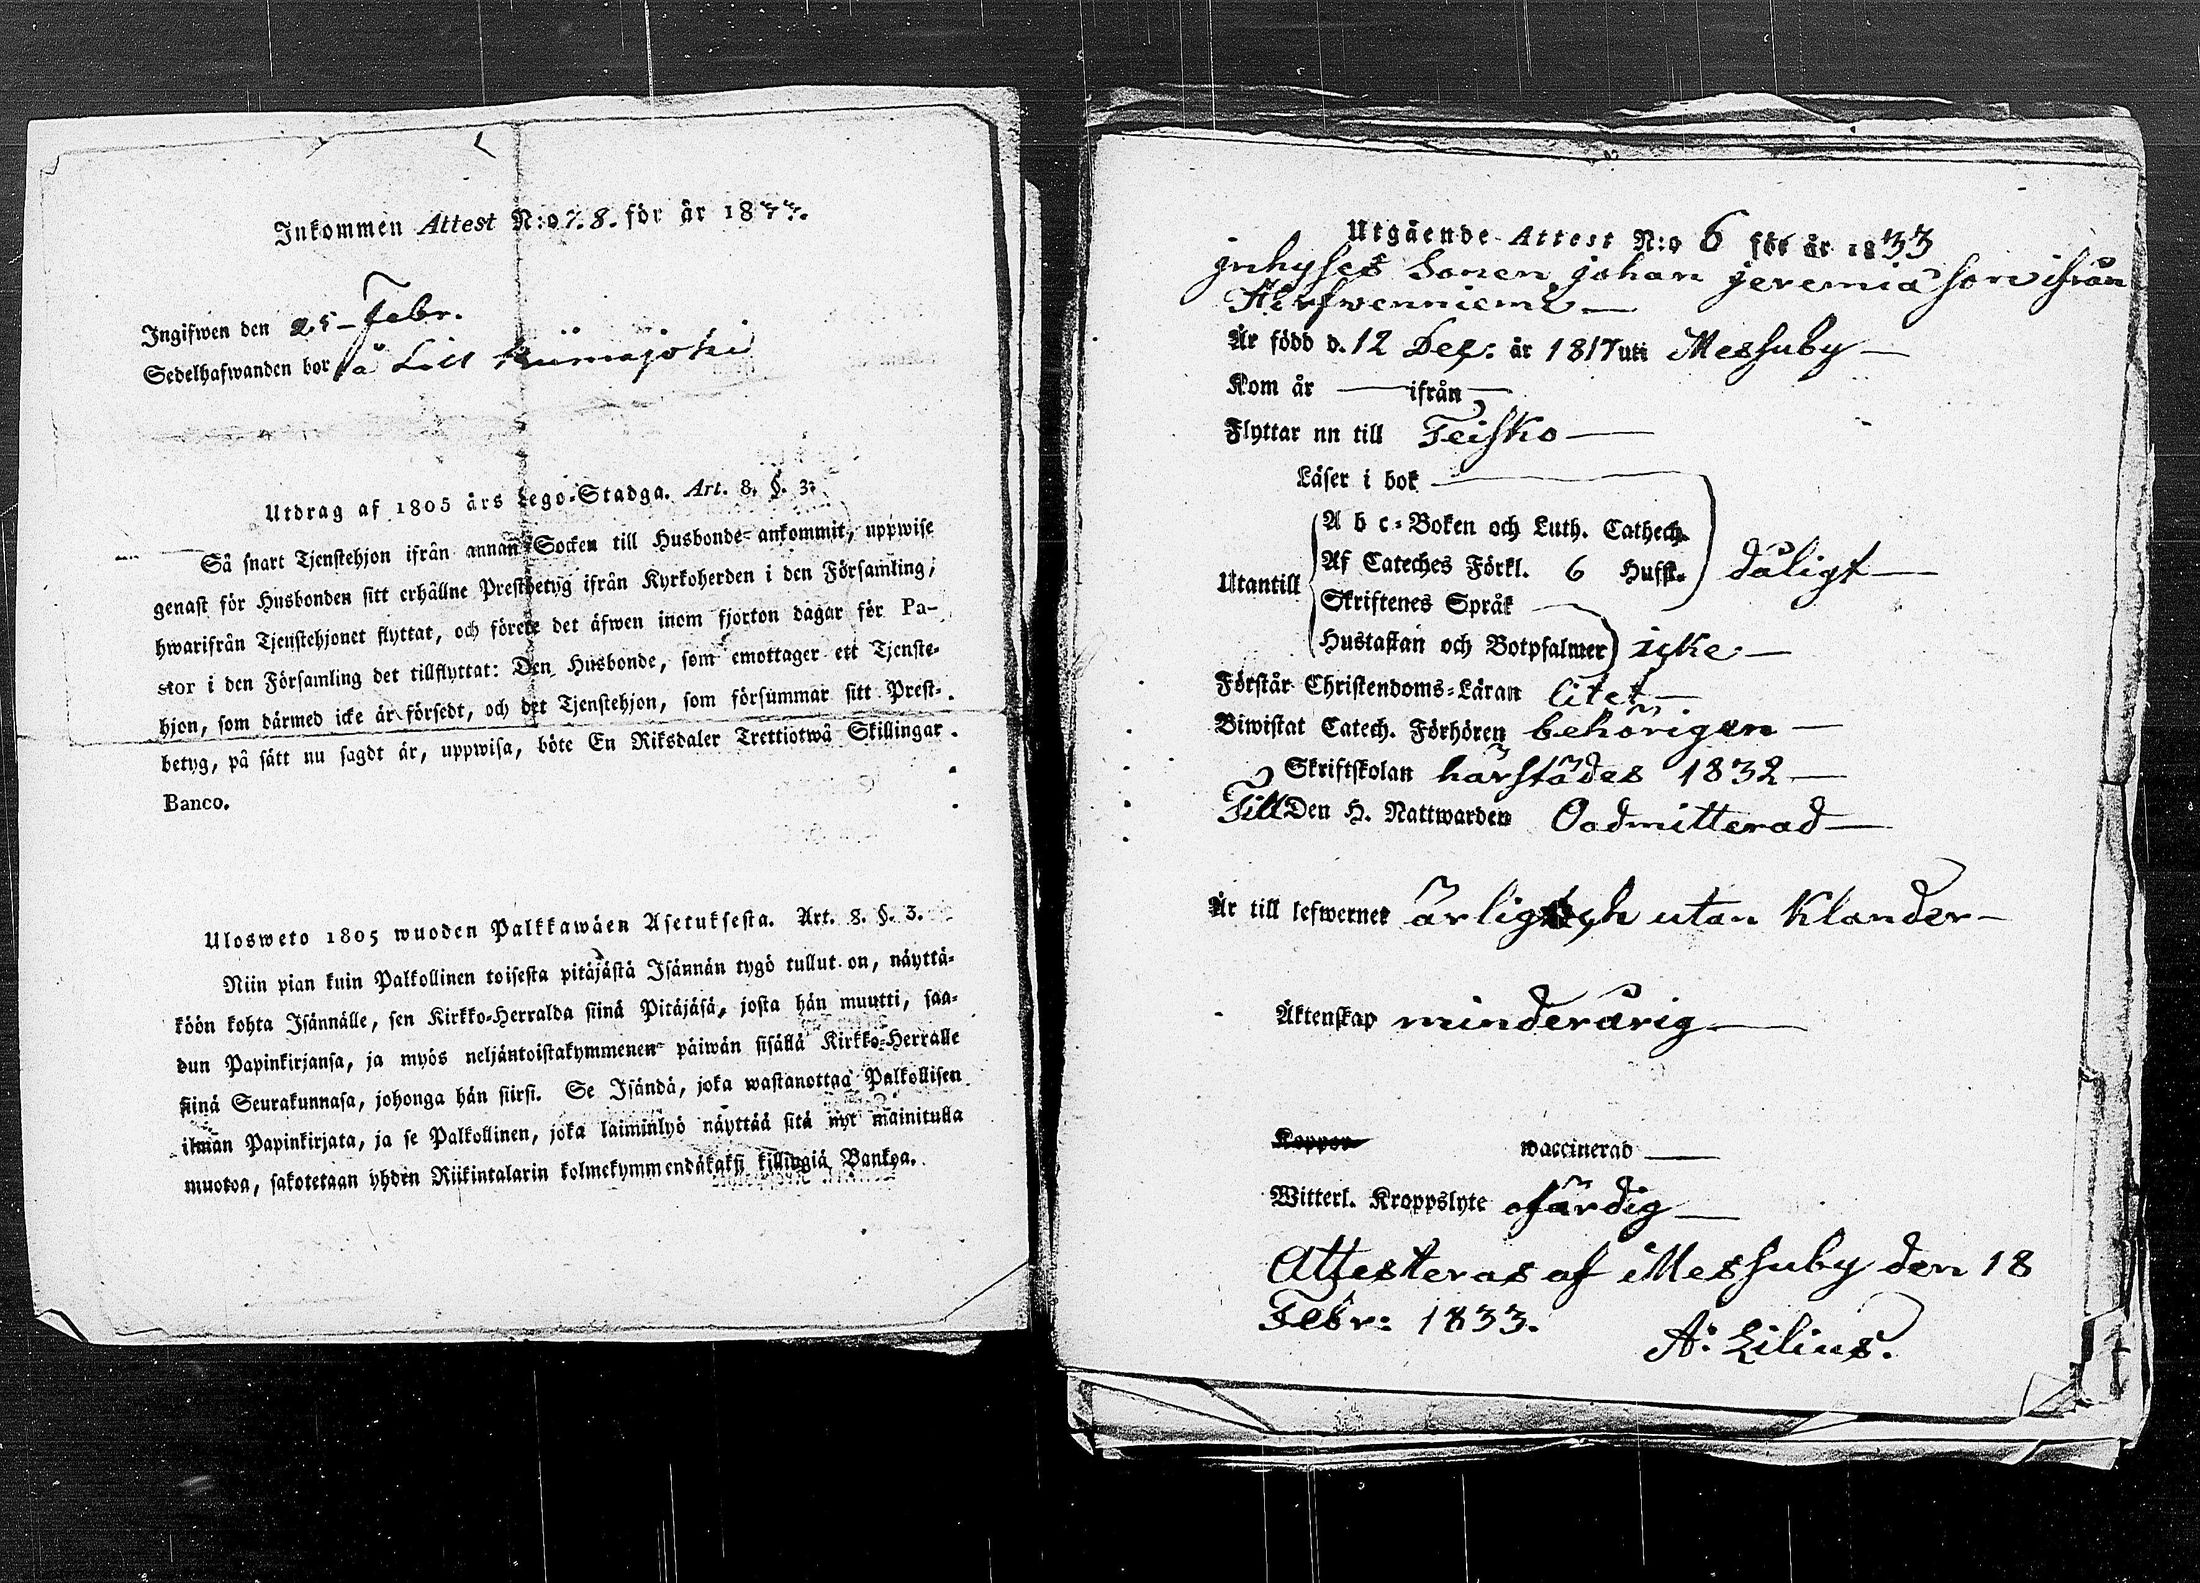 Inkommen Attest N:o 7.8. för år 1833.
Ingifwen den 25 Febr.
Sedelhafwanden bor på Lill Kiimajoki
Utdrag af 1805 års Lego-Stadga. Art. 8. §. 3.
Så snart Tjenstehjon ifrån annan Socken till Husbonde ankommit, uppwise
genast för Husbonden sitt erhållne Prestbetyg ifrån Kyrkoherden i den Församling,
hwarifrån Tjenstehjonet flyttat, och förete det äfwen inom fjorton dagar för Pa-
stor i den Församling det tillflyttat: Den Husbonde, som emottager ett Tjenste-
hjon, som därmed icke är försedt, och det Tjenstehjon, som försummar sitt Prest-
betyg, på sätt nu sagdt är, uppwisa, böte En Riksdaler Trettiotwå Skillingar
Banco.
Ulosweto 1805 wuoden Palkkawäen Asetuksesta. Art. 8. §. 3.
Niin pian kuin Palkollinen toisesta pitäjästä Isännän tygö tullut on, näyttä-
köön kohta Isännälle, sen Kirkko-Herralda siinä Pitäjäsä, josta hän muutti, saa-
dun Papinkirjansa, ja myös neljäntoistakymmenen päiwän sisällä Kirkko-Herralle
siinä Seurakunnasa, johonga hän siirsi. Se Isändä, joka wastanottaa Palkollisen
ilman Papinkirjata, ja se Palkollinen, joka laiminlyö näyttää sitä nyt mainitulla
muotoa, sakotetaan yhden Riikintalarin kolmekymmendäkaksi killingiä Bankoa.
Utgående Attest N:o 6 för år 1833
jnhyses Sonen johan jeremiæ son ifrån
Hirfwenniemi
Är född d. 12 Dec: år 1817 uti Messuby
Kom år ifrån
Flyttar nu till Teisko
Läser i bok
A b c-Boken och Luth. Cathech.
Af Cateches Förkl. 6 Hufst. dåligt
Utantill
Skriftenes Språk
Hustaflan och Botpsalmer icke
Förstår Christendoms-Läran litet
Biwistat Catech. Förhören behörigen
Skriftskolan härstädes 1832
Till Den H. Nattwarden Oadmitterad
Är till lefwernet ärlig och utan Klander
Äktenskap minderårig
Koppor waccinerad
Witterl. Kroppslyte ofärdig
Attesteras af Messuby den 18
Febr: 1833.
A: Lilius.